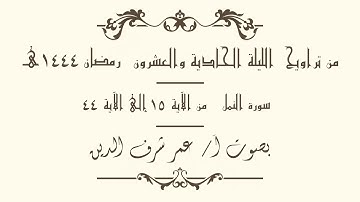 من تراويح الليلة الحادية والعشرون رمضان ١٤٤٤هـ
سورة النمل من الآية ١٥ إلى الآية ٤٤
بصوت أ/ عمر شرف الدين